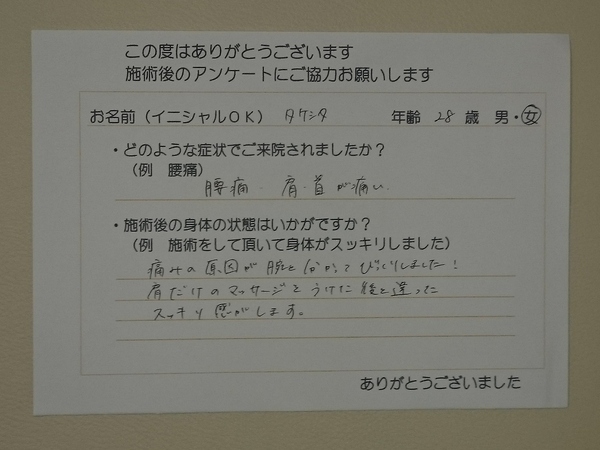 この度はありがとうございます
施術後のアンケートにご協力お願いします
お名前(イニシャルOK) タケシタ 年齢 28 歳 男・女
・どのような症状でご来院されましたか?
(例 腰痛)
腰痛・肩・首が痛い
・施術後の身体の状態はいかがですか?
(例 施術をして頂いて身体がスッキリしました)
痛みの原因が腕と分かってびっくりしました!
肩だけのマッサージをうけた後と違った
スッキリ感がします。
ありがとうございました